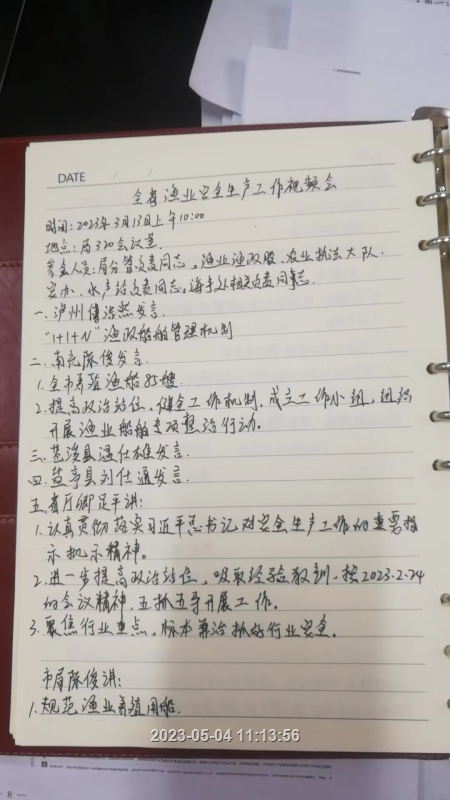 DATE / /
全省渔业安全生产工作视频会
时间:2023年3月13日上午10:00
地点:局320会议室
参会人员:局分管负责同志,渔业渔政股、农业执法大队、
安办、水产站负责同志,海事处相关负责同志。
一、泸州傅浩然发言
"1+1+N"渔政船舶管理机制
二、南充陈俊发言
1.全市养殖渔船85艘
2.提高政治站位,健全工作机制,成立工作小组,组织
开展渔业船舶专项整治行动。
三、苍溪县温仕雄发言
四、盐亭县刘仕通发言
五、省厅卿足平讲:
1.认真贯彻落实习近平总书记对安全生产工作的重要指
示批示精神。
2.进一步提高政治站位,吸取经验教训,按2023.2.24
的会议精神,五抓五导开展工作。
3.聚焦行业重点,标本兼治抓好行业安全。
市局陈俊讲:
1.规范渔业养殖用船.
2023-05-04 11:13:56
8